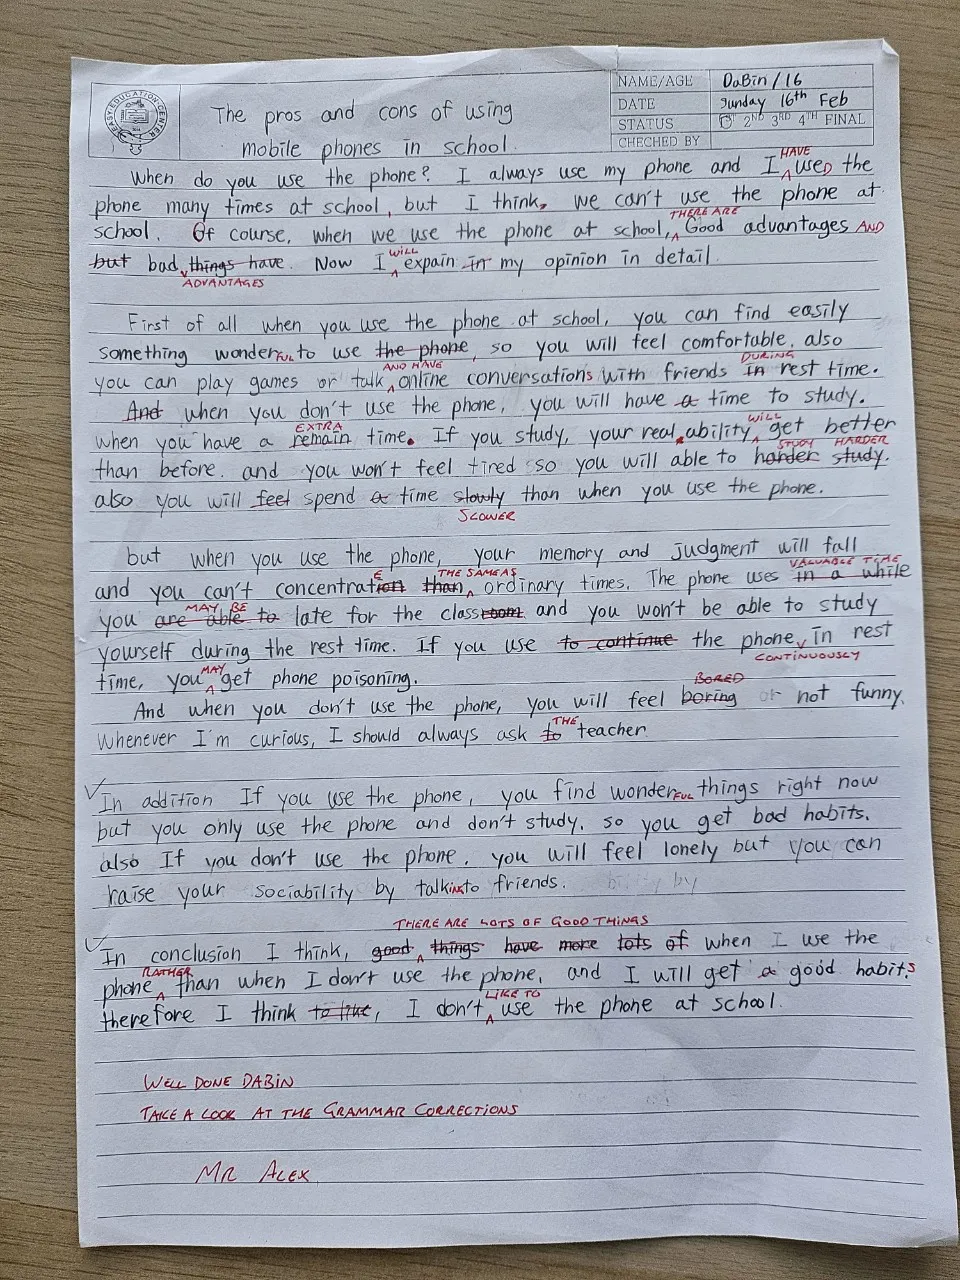 EASY EDUCATION CENTER
The pros and cons of using
mobile phones in school.
NAME/AGE DaBin / 16
DATE Sunday 16th Feb
STATUS 2ND 3RD 4TH FINAL
CHECHED BY
HAVE
When do you use the phone? I always use my phone and I used the
phone many times at school, but I think, we can't use the phone at
THERE ARE
school. Of course, when we use the phone at school, Good advantages AND
WILL
but bad things have. Now I expain in my opinion in detail.
ADVANTAGES
First of all when you use the phone at school, you can find easily
something wonderFUL to use the phone, so you will feel comfortable, also
AND HAVE DURING
you can play games or talk online conversations with friends in rest time.
And when you don't use the phone, you will have a time to study.
EXTRA WILL
when you have a remain time. If you study, your real ability get better
STUDY HARDER
than before. and you won't feel tired so you will able to harder study.
also you will feel spend a time slowly than when you use the phone.
SLOWER
but when you use the phone, your memory and judgment will fall
E THE SAME AS VALUABLE TIME
and you can't concentration than ordinary times. The phone uses in a while
MAY BE
you are able to late for the classroom and you won't be able to study
yourself during the rest time. If you use to continue the phone in rest
CONTINUOUSLY
MAY
time, you get phone poisoning.
BORED
And when you don't use the phone, you will feel boring or not funny.
THE
Whenever I'm curious, I should always ask to teacher.
In addition If you use the phone, you find wonderFUL things right now
but you only use the phone and don't study. so you get bad habits.
also If you don't use the phone. you will feel lonely but you can
raise your sociability by talkING to friends.
THERE ARE LOTS OF GOOD THINGS
In conclusion I think, good things have more lots of when I use the
RATHER
phone than when I don't use the phone. and I will get a good habits
LIKE TO
therefore I think, I don't use the phone at school.
WELL DONE DABIN
TAKE A LOOK AT THE GRAMMAR CORRECTIONS
MR ALEX